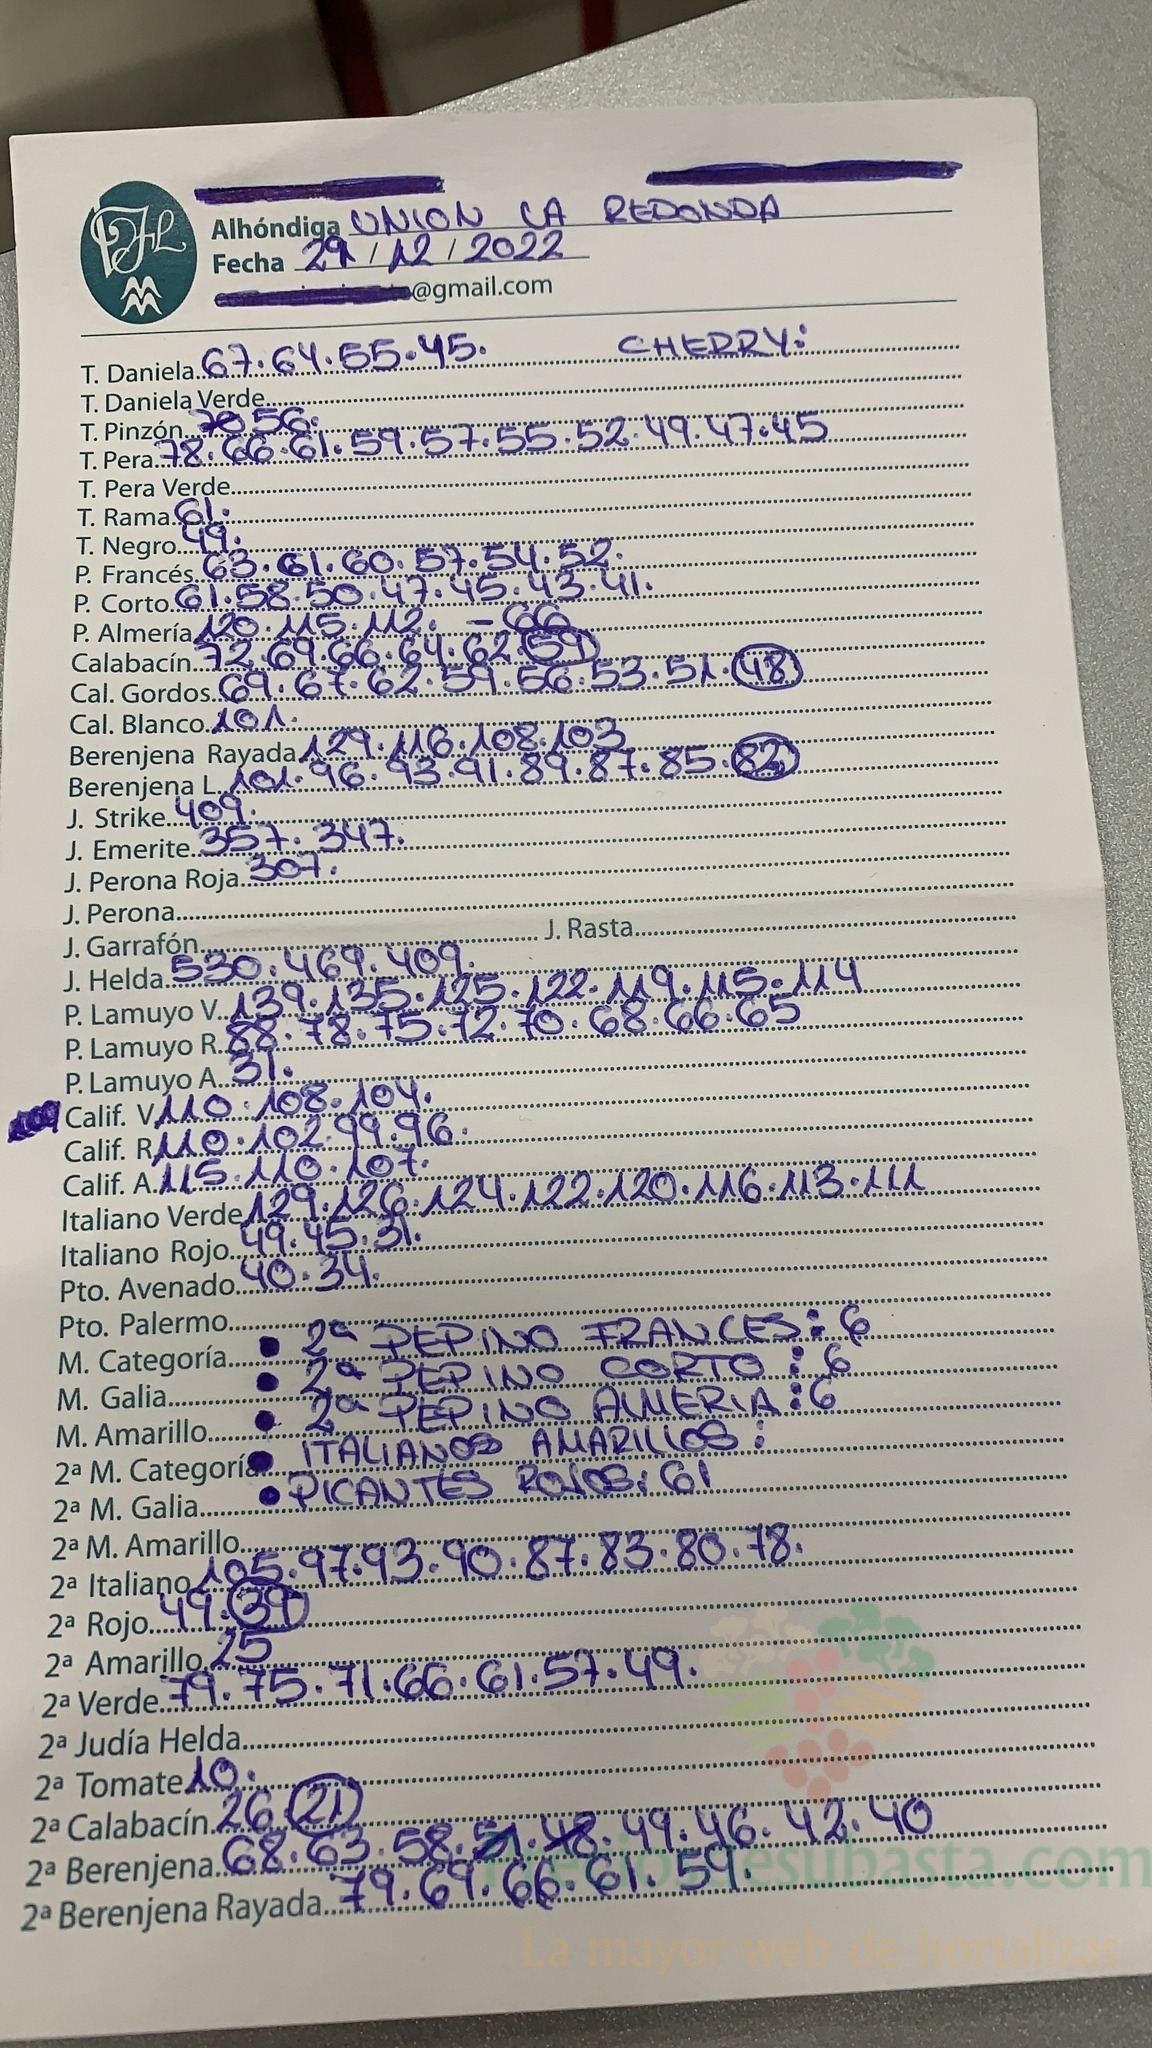 Alhóndiga UNION LA REDONDA
Fecha 29/12/2022
@gmail.com
T. Daniela 67.64.55.45. CHERRY:
T. Daniela Verde
T. Pinzón 56.
T. Pera 78.66.61.59.57.55.52.49.47.45
T. Pera Verde
T. Rama 61.
T. Negro 49.
P. Francés 63.61.60.57.54.52.
P. Corto 61.58.50.47.45.43.41.
P. Almería 120.115.112. - 66
Calabacín 72.69.66.64.62.59
Cal. Gordos 69.67.62.59.56.53.51.48
Cal. Blanco 101.
Berenjena Rayada 129.116.108.103
Berenjena L. 101.96.93.91.89.87.85.82
J. Strike 409.
J. Emerite 357.347.
J. Perona Roja 307.
J. Perona
J. Garrafón J. Rasta
J. Helda 530.469.409.
P. Lamuyo V. 139.135.125.122.119.115.114
P. Lamuyo R. 88.78.75.72.70.68.66.65
P. Lamuyo A. 31.
Calif. V. 110.108.104.
Calif. R. 110.102.99.96.
Calif. A. 115.110.107.
Italiano Verde 129.126.124.122.120.116.113.111
Italiano Rojo 49.45.31.
Pto. Avenado 40.34.
Pto. Palermo
M. Categoría • 2ª PEPINO FRANCES: 6
M. Galia • 2ª PEPINO CORTO: 6
M. Amarillo • 2ª PEPINO ALMERIA: 6
2ª M. Categoría • ITALIANOS AMARILLOS:
2ª M. Galia • PICANTES ROJOS: 61
2ª M. Amarillo
2ª Italiano 105.97.93.90.87.83.80.78.
2ª Rojo 49.39
2ª Amarillo 25
2ª Verde 79.75.71.66.61.57.49.
2ª Judía Helda
2ª Tomate 10.
2ª Calabacín 26.21
2ª Berenjena 68.63.58.51.48.49.46.42.40
2ª Berenjena Rayada 79.69.66.61.59.
preciosdesubasta.com
La mayor web de hortalizas